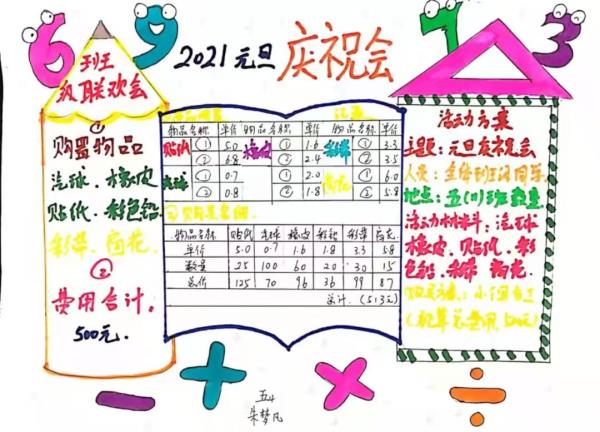 2021元旦
庆祝会
班
级联欢会
①
购置物品
汽球.橡皮
贴纸.彩色铅
彩带.荷花
②
费用合计:
500元.
物品名称 单价 物品名称 单价 物品名称 单价
贴纸 ① 5.0 橡皮 ① 1.6 彩带 ① 3.3
② 6.8 ② 2.4 ② 3.5
气球 ① 0.7 ① 2.0 荷花 ① 6.0
② 0.8 ② 1.8 ② 5.8
物品名称 贴纸 气球 橡皮 彩铅 彩带 荷花
单价 5.0 0.7 1.6 1.8 3.3 5.8
数量 25 100 60 20 30 15
总价 125 70 96 36 99 87
总计:(513元)
活动方案
主题:元旦庆祝会
人员:全体
地点:五(1)班教室
活动材料:汽球
橡皮.贴纸.彩
色铅.彩带.荷花.
五4
朱梦凡